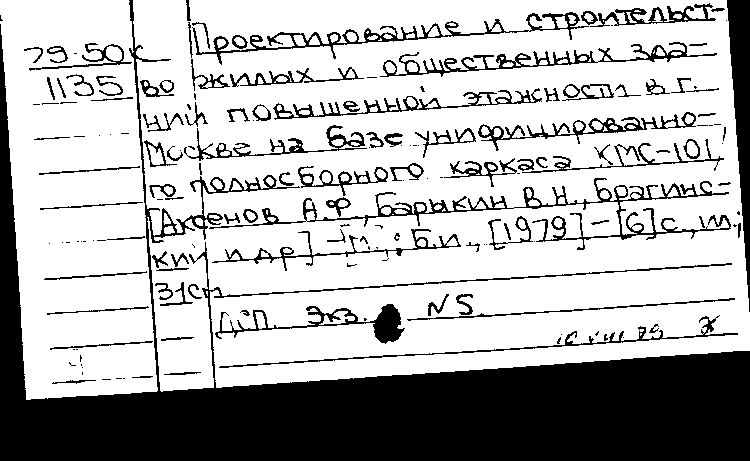 79-50к Проектирование и строительст-
1135 во жилых и общественных зда-
ний повышенной этажности в г.
Москве на базе унифицированно-
го полносборного каркаса КМС-101/
[Аксенов А.Ф., Барыкин В.Н., Брагинс-
кий и др] - [М]. : Б.и., [1979] - [6] с., ил;
31см
ДСП. Экз. N5.